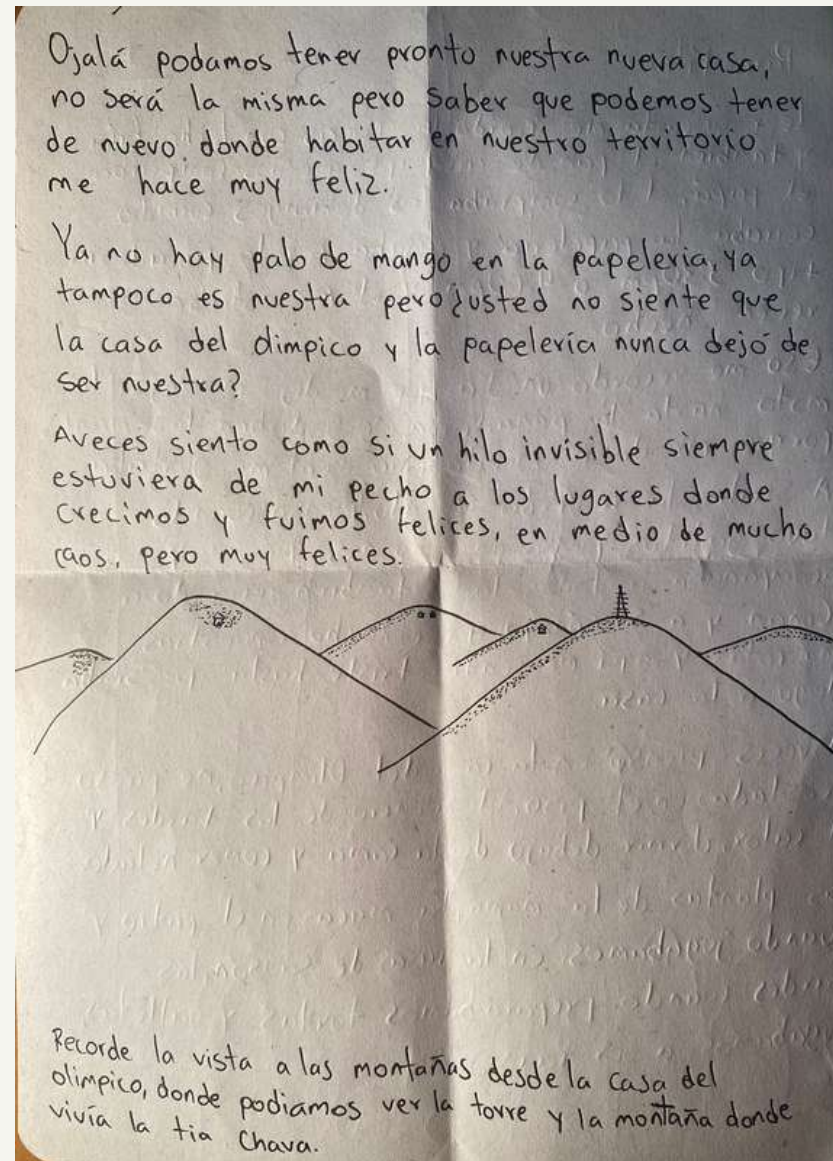 Ojalá podamos tener pronto nuestra nueva casa,
no será la misma pero saber que podemos tener
de nuevo donde habitar en nuestro territorio
me hace muy feliz.
Ya no hay palo de mango en la papelería, ya
tampoco es nuestra pero ¿usted no siente que
la casa del olimpico y la papelería nunca dejó de
ser nuestra?
Aveces siento como si un hilo invisible siempre
estuviera de mi pecho a los lugares donde
crecimos y fuimos felices, en medio de mucho
caos, pero muy felices.
Recorde la vista a las montañas desde la casa del
olimpico, donde podiamos ver la torre y la montaña donde
vivía la tia Chava.